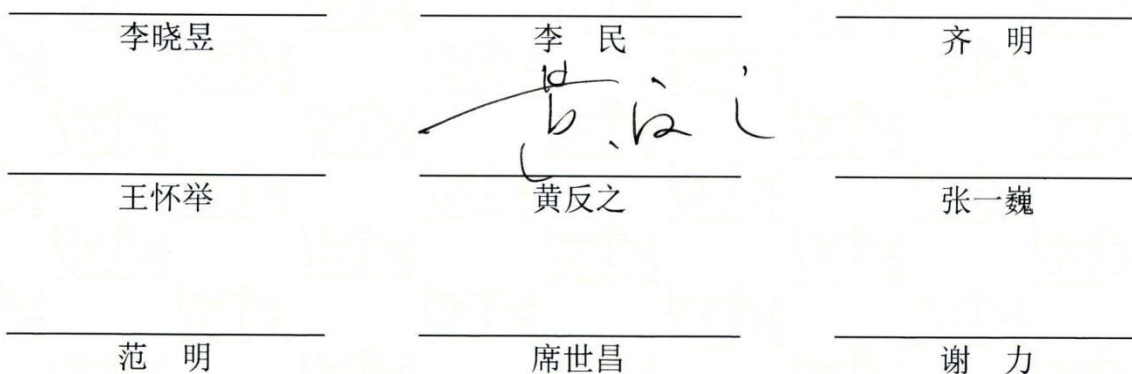 李晓昱 李 民 齐 明
黄反之
王怀举 黄反之 张一巍
范 明 席世昌 谢 力